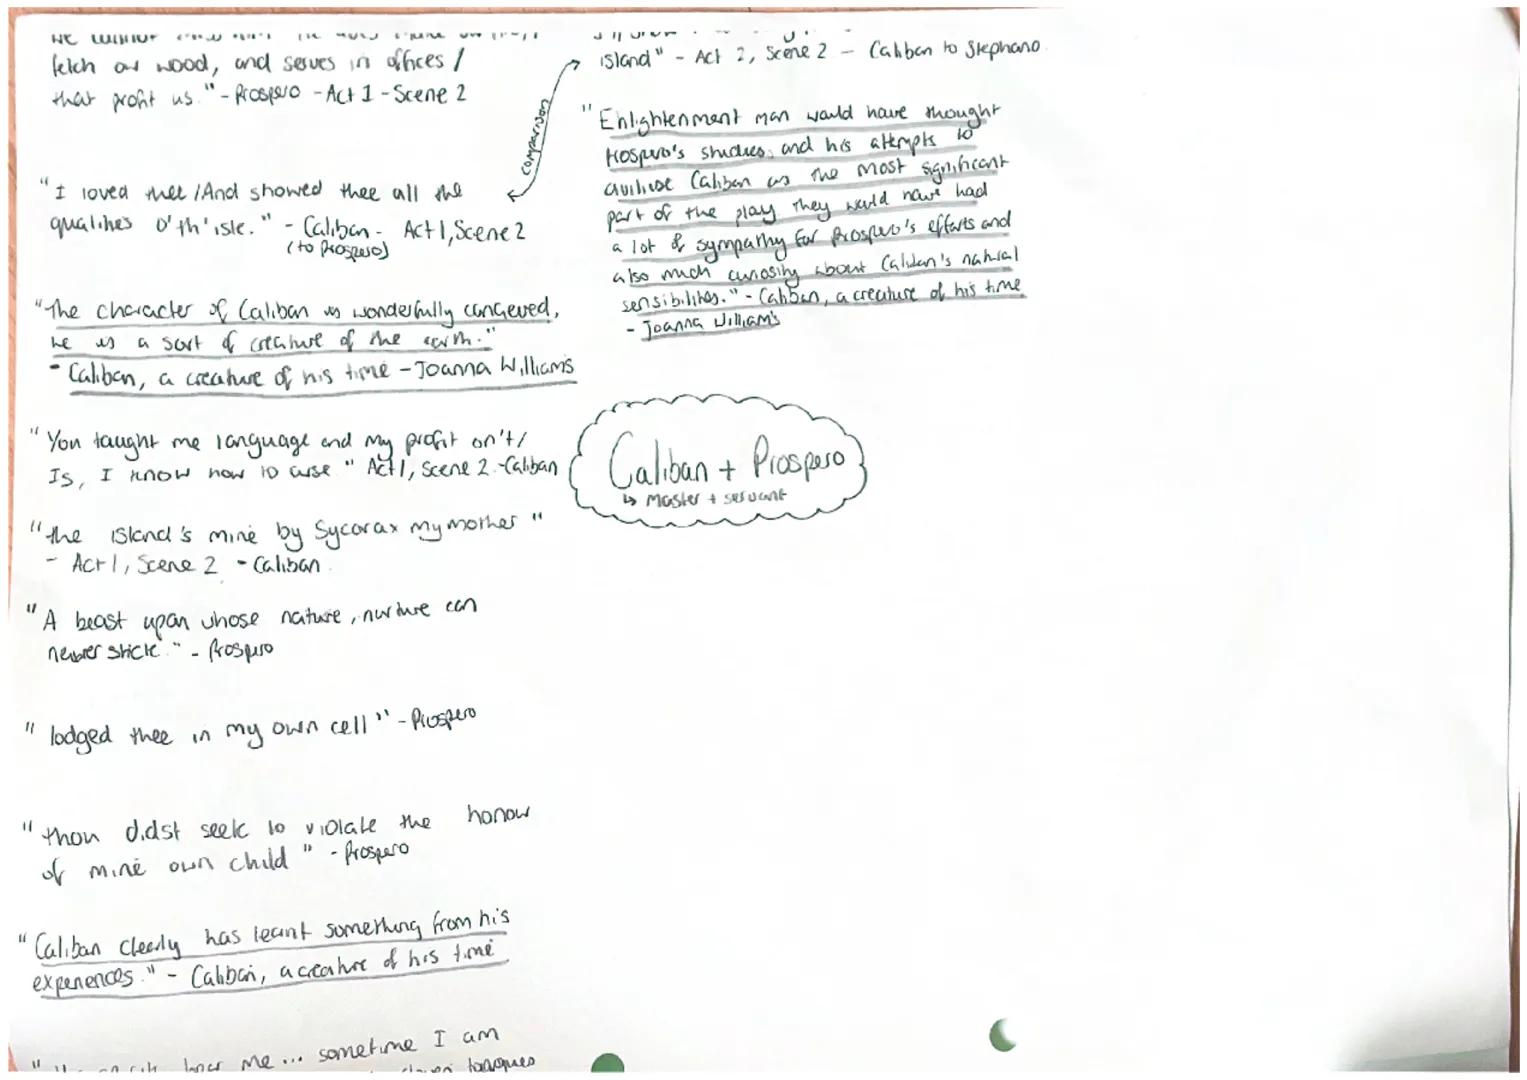 fetch our wood, and serves in offices /
that profit us." - Prospero - Act 1 - Scene 2
"I loved thee / And showed thee all the
qualities o'th'isle." - Caliban - Act 1, Scene 2
(to Prospero)
"The character of Caliban is wonderfully conceived,
he is a sort of creature of the earth."
- Caliban, a creature of his time - Joanna Williams
"You taught me language and my profit on't/
Is, I know how to curse" Act 1, Scene 2 - Caliban
"the island's mine by Sycorax my mother"
- Act 1, Scene 2 - Caliban
"A beast upon whose nature, nurture can
never stick." - Prospero
"lodged thee in my own cell" - Prospero
"thou didst seek to violate the honour
of mine own child" - Prospero
"Caliban clearly has learnt something from his
experiences." - Caliban, a creature of his time
me ... sometime I am
tongues
comparison
island" - Act 2, Scene 2 - Caliban to Stephano
"Enlightenment man would have thought
Prospero's studies, and his attempts to
civilise Caliban as the most significant
part of the play they would have had
a lot of sympathy for Prospero's efforts and
also much curiosity about Caliban's natural
sensibilities." - Caliban, a creature of his time
- Joanna William's
Caliban + Prospero
↳ Master + servant